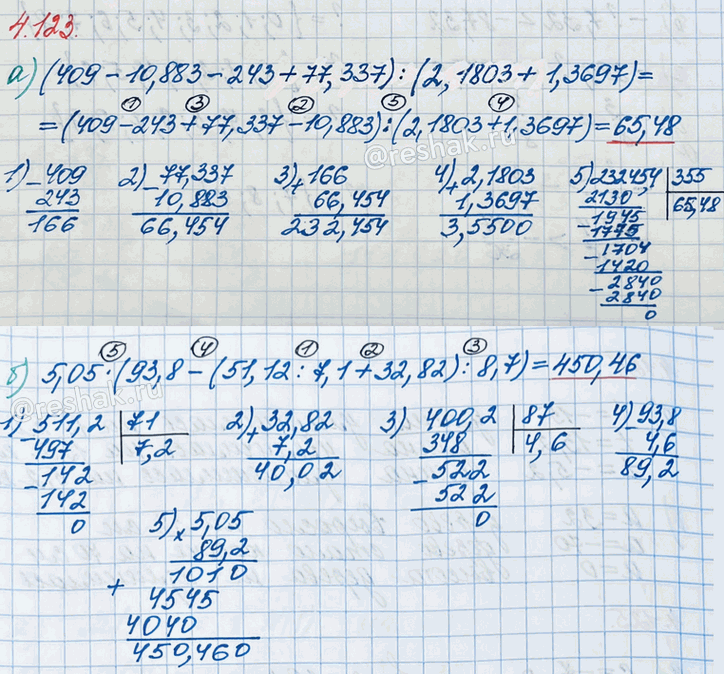 4.123.
а) (409 − 10,883 − 243 + 77,337) : (2,1803 + 1,3697) =
① ③ ② ⑤ ④
= (409 − 243 + 77,337 − 10,883) : (2,1803 + 1,3697) = 65,48
1) − 409 2) − 77,337 3) + 166 4) + 2,1803 5) 232454 355
243 10,883 66,454 1,3697 2130 65,48
166 66,454 232,454 3,5500 1945
− 1775
− 1704
1420
− 2840
2840
0
⑤ ④ ① ② ③
б) 5,05 · (93,8 − (51,12 : 7,1 + 32,82) : 8,7) = 450,46
1) − 511,2 71 2) + 32,82 3) 400,2 87 4) − 93,8
497 7,2 7,2 348 4,6 4,6
− 142 40,02 − 522 89,2
142 522
0 0
5) × 5,05
89,2
1010
+ 4545
4040
450,460
@reshak.ru
@reshak.ru